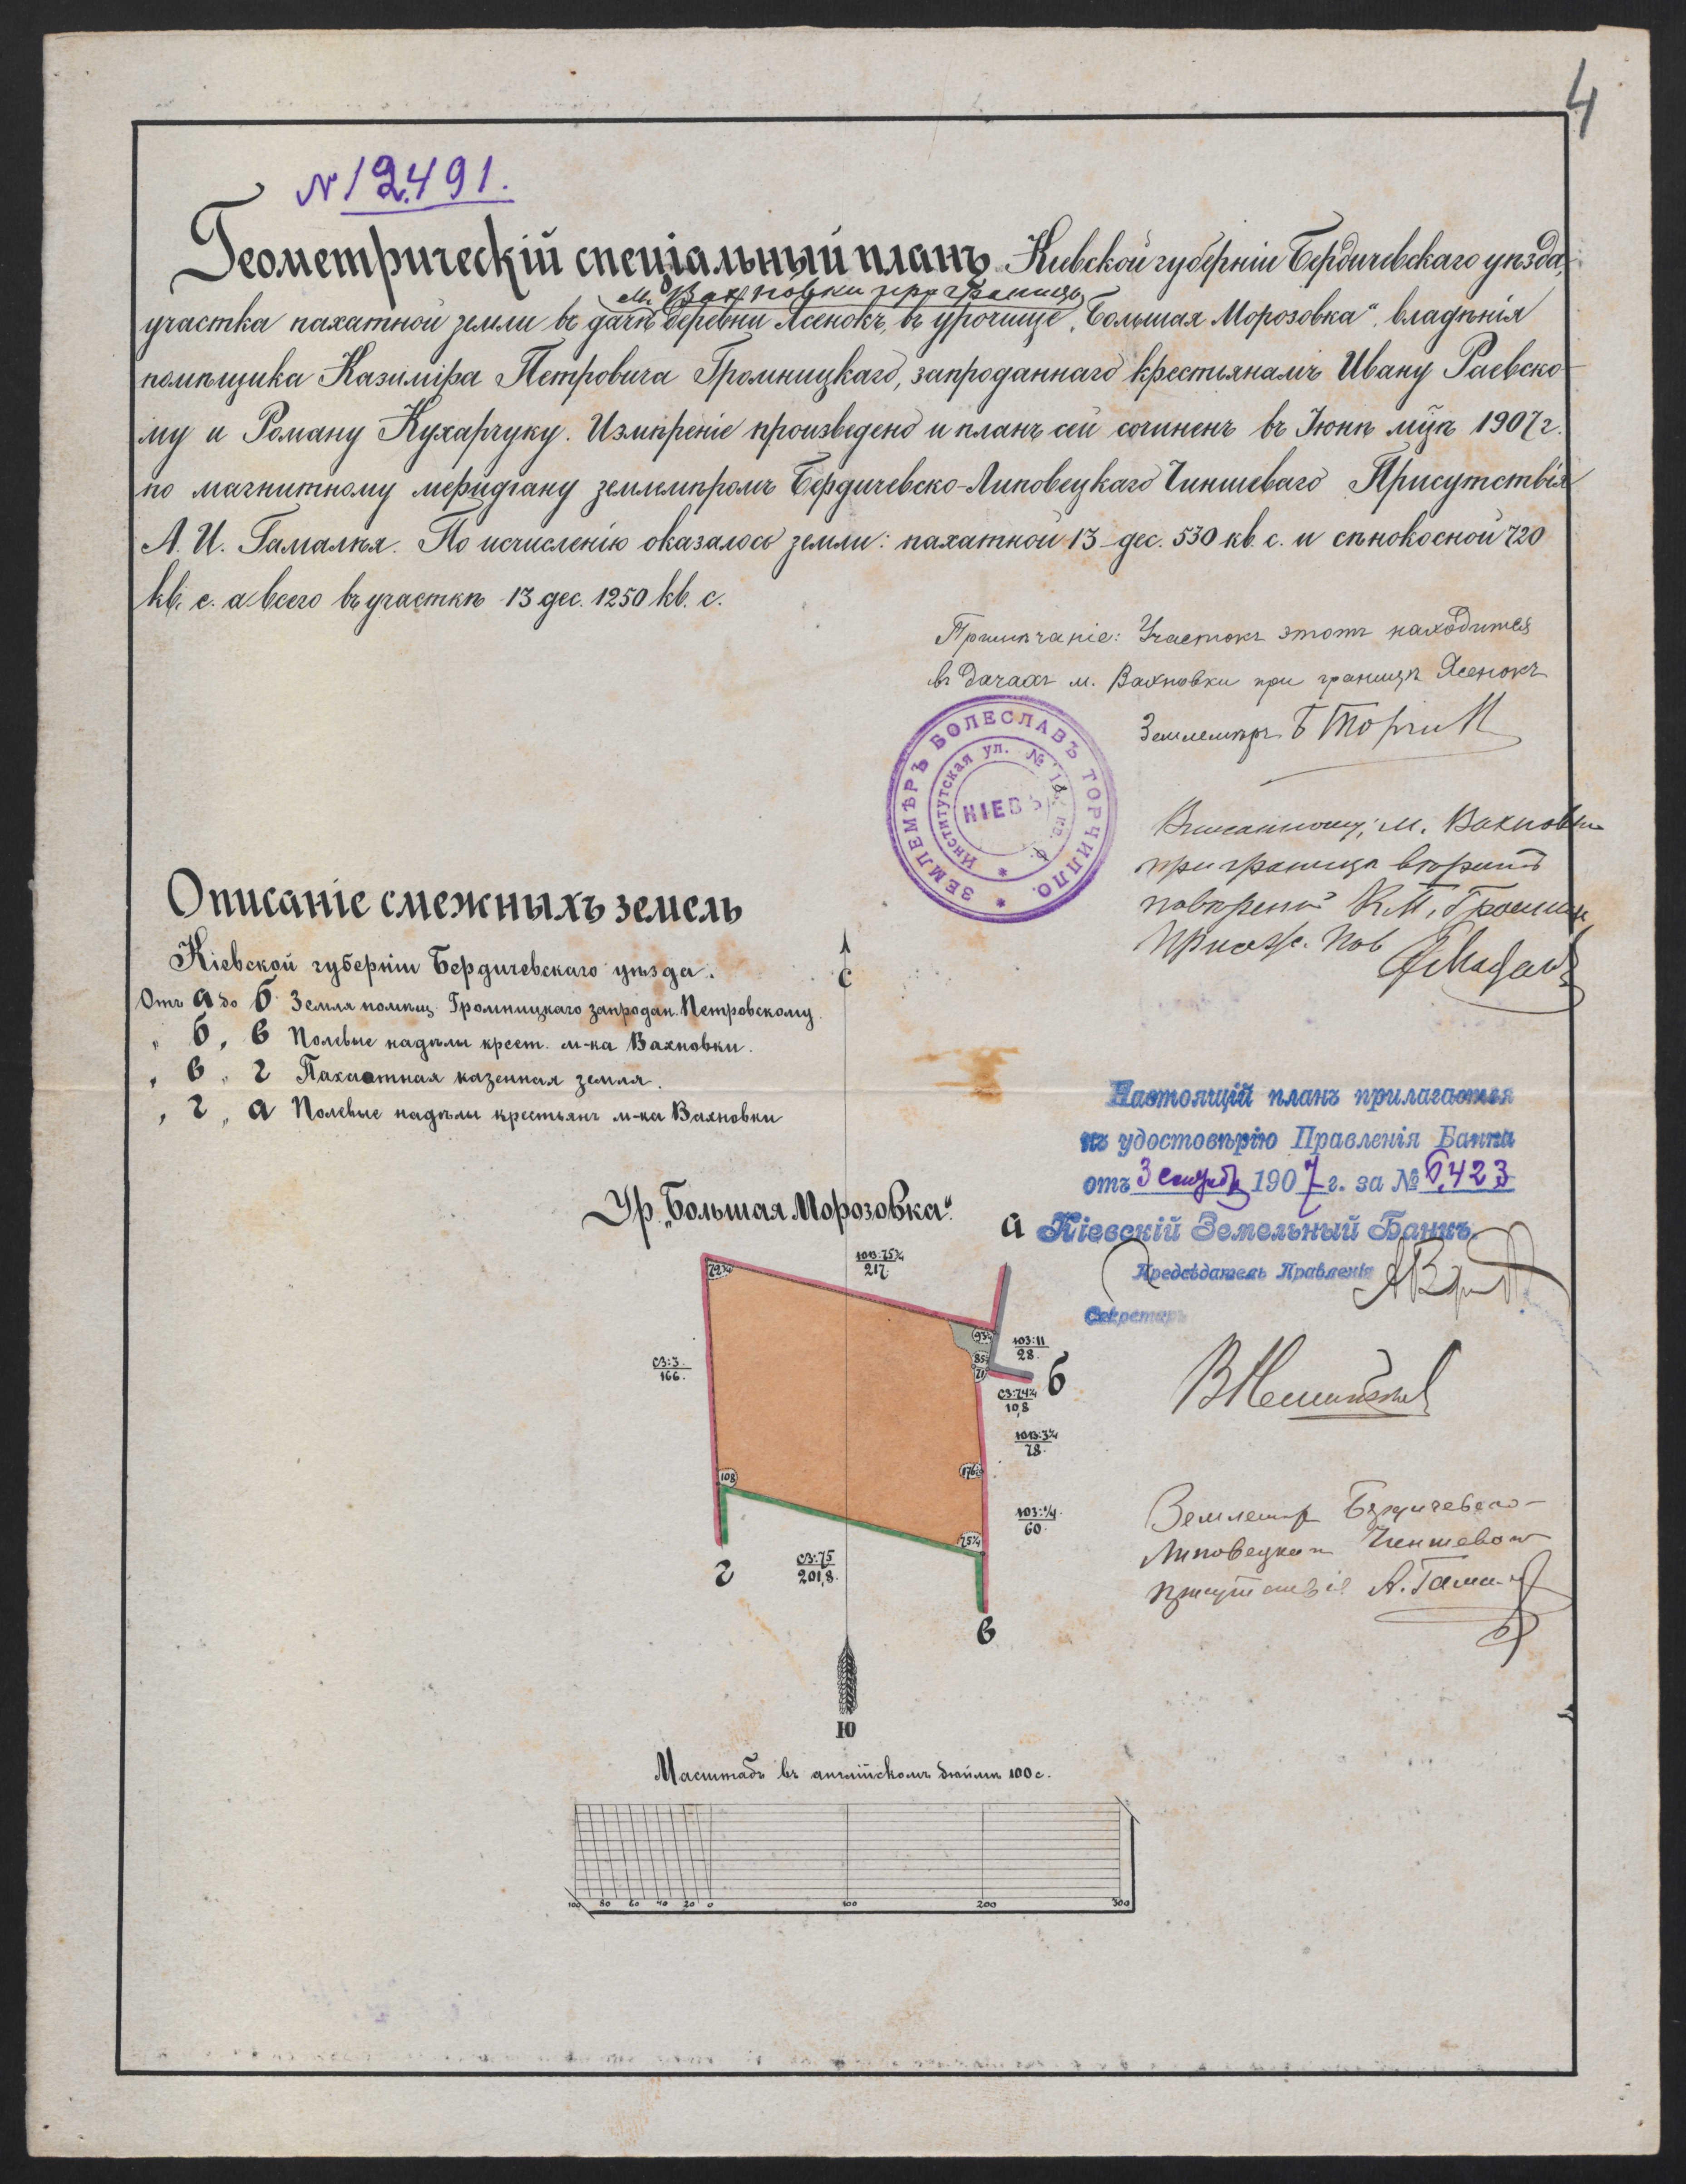 4
№ 12491.
Геометрическій спеціальный планъ Кіевской губерніи Бердичевскаго уѣзда,
м. Вахновки при границѣ
участка пахатной земли въ дачѣ деревни Ясенокъ, въ урочищѣ „Большая Морозовка“ владѣнія
помѣщика Казиміра Петровича Громницкаго, запроданнаго крестьянамъ Ивану Раевско-
му и Роману Кухарчуку. Измѣреніе произведено и планъ сей сочиненъ въ Іюнѣ м-цѣ 1907 г.
по магнитному меридіану землемѣромъ Бердичевско-Липовецкаго Чиншеваго Присутствія
А. И. Гамалѣя. По исчисленію оказалось земли: пахатной 13 дес. 530 кв. с. и сѣнокосной 720
кв. с. а всего въ участкѣ 13 дес. 1250 кв. с.
Примѣчаніе: Участокъ этотъ находится
въ дачахъ м. Вахновки при границѣ Ясенокъ
Землемѣръ Б Торчил
ЗЕМЛЕМѢРЪ БОЛЕСЛАВЪ ТОРЧИЛЛО.
Институтская ул. № 18, кв.
КІЕВЪ
м. Вахновки
при границѣ вѣрить
повѣрений К. П. Громниц
Присяж. Пов
Описаніе смежныхъ земель
Кіевской губерніи Бердичевскаго уѣзда.
Отъ а до б Земля помѣщ. Громницкаго запродан. Петровскому.
„ б „ в Полевые надѣлы крест. м-ка Вахновки.
„ в „ г Пахатная казенная земля.
„ г „ а Полевые надѣлы крестьянъ м-ка Вахновки
С
Настоящій планъ прилагается
къ удостовѣрію Правленія Банка
отъ 3 сентября 1907 г. за № 6,423
Кіевскій Земельный Банкъ.
Предсѣдатель Правленія
Секретарь
Ур. „Большая Морозовка“.
а
ЮВ:75¼
217.
72¼
93¾
ЮЗ:11
28.
СЗ:3.
166.
85¾
71
б
СЗ:74¼
10,8
ЮВ:3¼
78.
176½
108
ЮЗ:¼
60.
75¼
СЗ:75
201,8.
г
в
Землемѣр Бердичевско-
Липовецкаго Чиншеваго
присутствія А. Гамалѣя
Ю
Масштабъ въ англійскомъ дюймѣ 100 с.
100 80 60 40 20 0 100 200 300